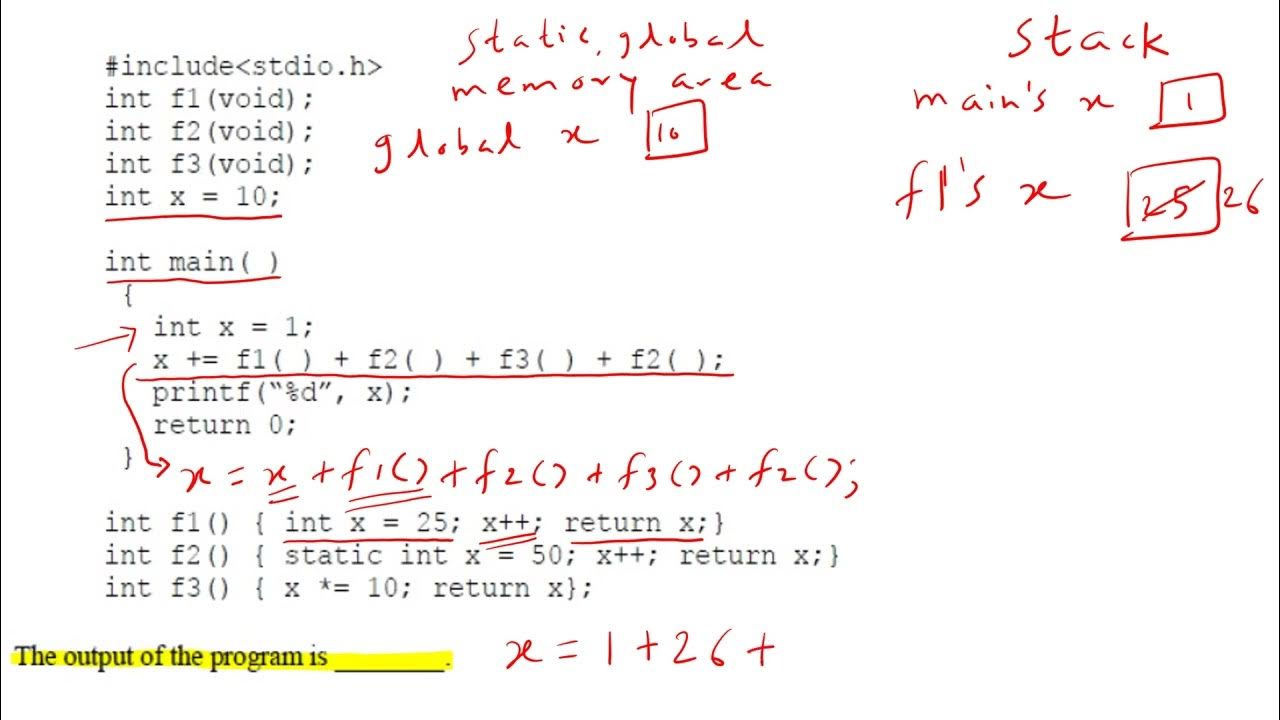 #include<stdio.h>
int f1(void);
int f2(void);
int f3(void);
int x = 10;
int main( )
{
int x = 1;
x += f1( ) + f2( ) + f3( ) + f2( );
printf(“%d”, x);
return 0;
}
x = x + f1() + f2() + f3() + f2();
int f1() { int x = 25; x++; return x;}
int f2() { static int x = 50; x++; return x;}
int f3() { x *= 10; return x};
The output of the program is ________.
x = 1 + 26 +
static, global
memory area
global x 10
Stack
main's x 1
f1's x 25 26